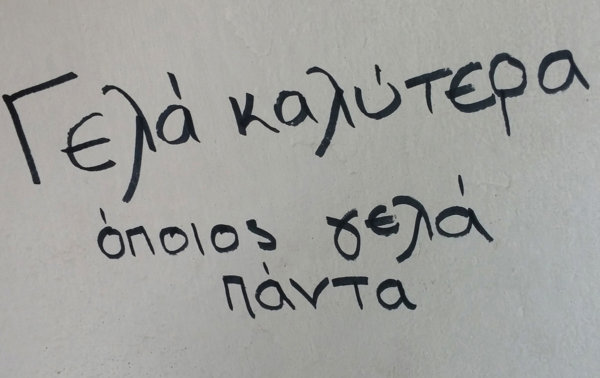 Γελά καλύτερα
όποιος γελά
πάντα